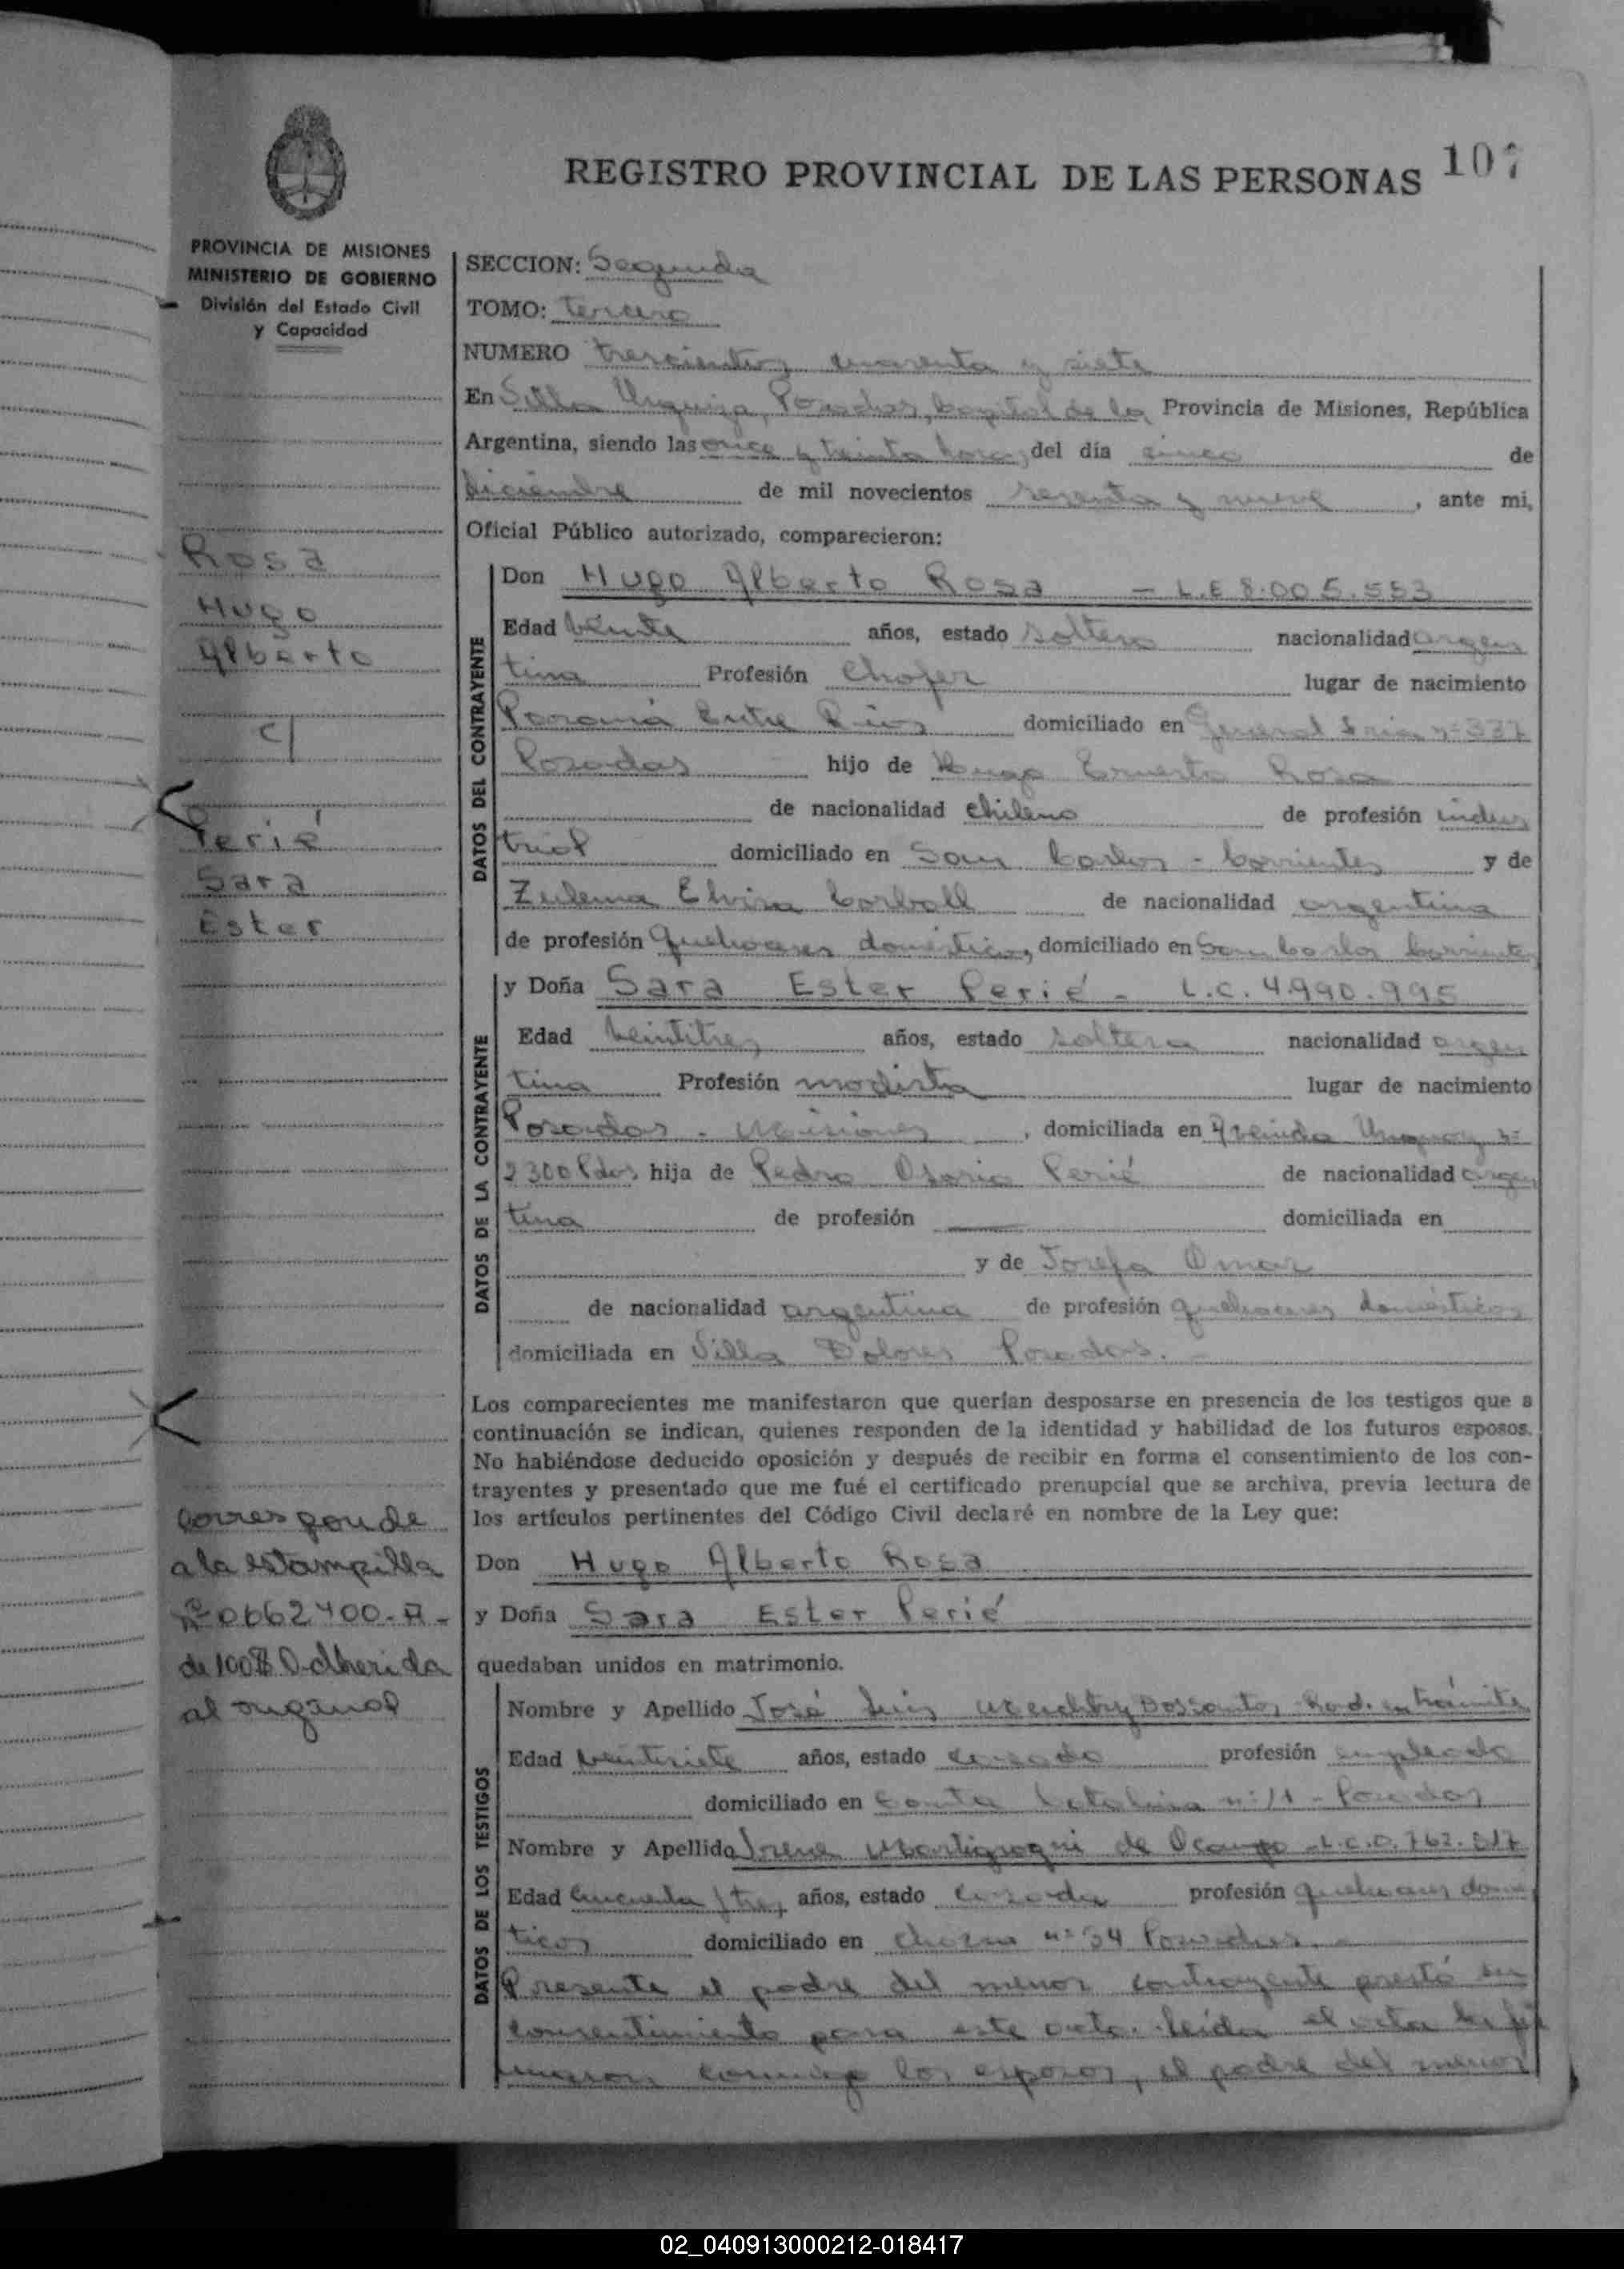 REGISTRO PROVINCIAL DE LAS PERSONAS 107
PROVINCIA DE MISIONES
MINISTERIO DE GOBIERNO
División del Estado Civil
y Capacidad
Rosa
Hugo
Alberto
c/
Perié
Sara
Ester
Corresponde
a la estampilla
Nº 0662400-A-
de 100$ Adherida
al original
SECCION: Segunda
TOMO: tercero
NUMERO trescientos cuarenta y siete
En Villa Urquiza, Posadas, Capital de la Provincia de Misiones, República
Argentina, siendo las once y treinta horas del día cinco de
diciembre de mil novecientos sesenta y nueve, ante mi,
Oficial Público autorizado, comparecieron:
DATOS DEL CONTRAYENTE
Don Hugo Alberto Rosa - L.E 8.005.553
Edad veinte años, estado soltero nacionalidad argen
tina Profesión Chofer lugar de nacimiento
Paraná Entre Ríos domiciliado en General nº 337
Posadas hijo de Hugo Ernesto Rosa
de nacionalidad chileno de profesión indus
trial domiciliado en San Carlos - Corrientes y de
Zulema Elvira Carball de nacionalidad argentina
de profesión Quehaceres domésticos, domiciliado en San Carlos Corrientes
DATOS DE LA CONTRAYENTE
y Doña Sara Ester Perié - L.C. 4.990.995
Edad veintitres años, estado soltera nacionalidad argen
tina Profesión modista lugar de nacimiento
Posadas - Misiones, domiciliada en Avenida Uruguay nº
2300 Pdas hija de Pedro Osorio Perié de nacionalidad argen
tina de profesión — domiciliada en
y de Josefa Omar
de nacionalidad argentina de profesión quehaceres domésticos
domiciliada en Villa Dolores Posadas.-
Los comparecientes me manifestaron que querían desposarse en presencia de los testigos que a
continuación se indican, quienes responden de la identidad y habilidad de los futuros esposos.
No habiéndose deducido oposición y después de recibir en forma el consentimiento de los con-
trayentes y presentado que me fué el certificado prenupcial que se archiva, previa lectura de
los artículos pertinentes del Código Civil declaré en nombre de la Ley que:
Don Hugo Alberto Rosa
y Doña Sara Ester Perié
quedaban unidos en matrimonio.
DATOS DE LOS TESTIGOS
Nombre y Apellido José Luis Dossantos en trámite
Edad veintisiete años, estado casado profesión empleado
domiciliado en Santa Catalina nº 11 - Posadas
Nombre y Apellido Irene de Ocampo - L.C.0.762.517
Edad cincuenta y tres años, estado casada profesión quehaceres domés
ticos domiciliado en nº 34 Posadas.-
Presente el padre del menor contrayente prestó su
consentimiento para este acto. Leída el acta la fir
maron conmigo los esposos, el padre del menor
02_040913000212-018417